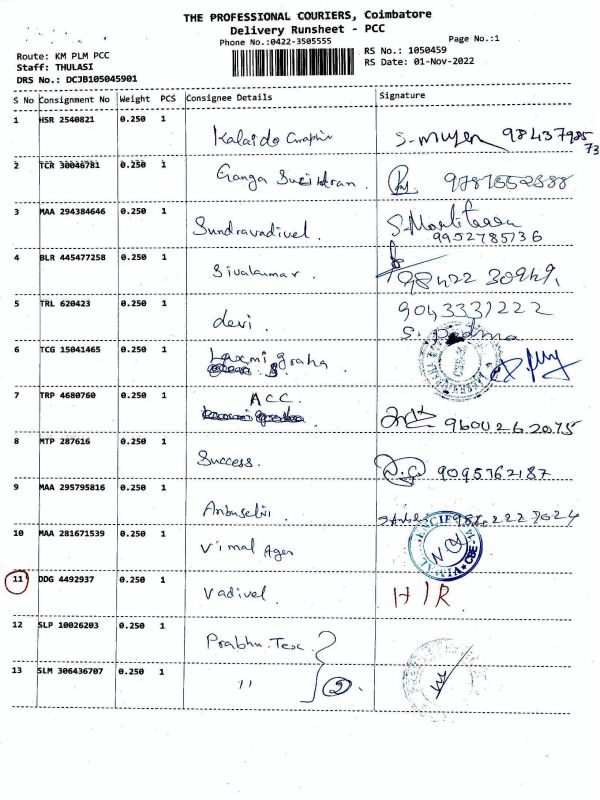 THE PROFESSIONAL COURIERS, Coimbatore
Delivery Runsheet - PCC
Phone No.:0422-3505555 Page No.:1
Route: KM PLM PCC RS No.: 1050459
Staff: THULASI RS Date: 01-Nov-2022
DRS No.: DCJB105045901
S No Consignment No Weight PCS Consignee Details Signature
1 HSR 2540821 0.250 1
2 TCR 30046781 0.250 1 Ganga
3 MAA 294384646 0.250 1 Sundravadivel.
9952785736
4 BLR 445477258 0.250 1 Sivakumar.
98422 30949.
5 TRL 620423 0.250 1 devi. 9043331222
S. Padma
6 TCG 15041465 0.250 1 Laxmi graha
7 TRP 4680760 0.250 1 ACC. 9600262075
8 MTP 287616 0.250 1 Success. 9095762187
9 MAA 295795816 0.250 1 Anbuselvi
10 MAA 281671539 0.250 1 Vimal Agen
11 DDG 4492937 0.250 1 Vadivel H/R
12 SLP 10026203 0.250 1 Prabhu. Tex
13 SLM 306436707 0.250 1 '' 2.